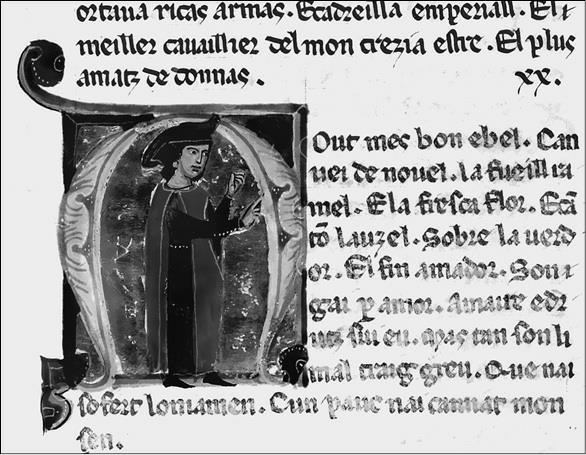 ortaua ricas armas. E cadreilla emperiall. El
meiller cauaillier del mon crezia esser. El plus
amatz de donnas.
xx.
Mout mes bon e bel. Can
uei de nouel. La fueill
mel. E la fresca flor. E cã
tõ lauzel. Sobre la uerd
or. El fin amador. Son
gai p amor. Amaire e dr
utz sui eu. Mas tan son li
mal trag greu. Que nai
sofert loniamen. Cun pauc nai camiat mon
sen.